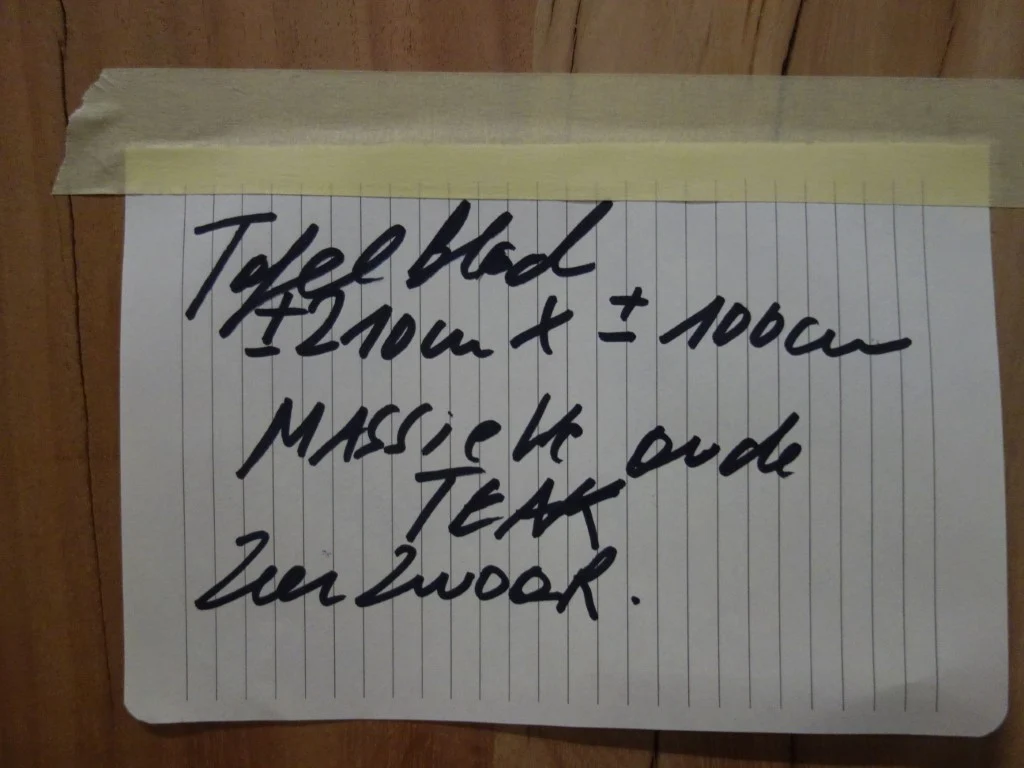 Tafelblad
± 210cm X ± 100cm
MASSieve oude
TEAK
Zeer ZwaaR.